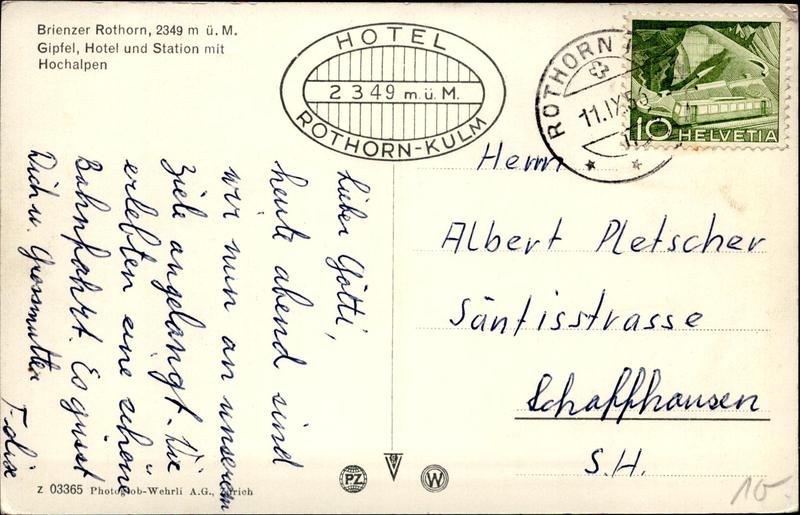 Brienzer Rothorn, 2349 m ü. M.
Gipfel, Hotel und Station mit
Hochalpen
HOTEL
2349 m.ü.M.
ROTHORN-KULM
ROTHORN
11.IX.5
10 HELVETIA
Lieber Götti,
heute abend sind
wir nun an unserem
Ziele angelangt. Wie
erlebten eine schöne
Bahnfahrt. Es grüsst
Dich u. Grossmutter
Felix
Herrn
Albert Pletscher
Säntisstrasse
Schaffhausen
S.H.
Z 03365 Photoglob-Wehrli A.G., Zürich
PZ
W
10.-